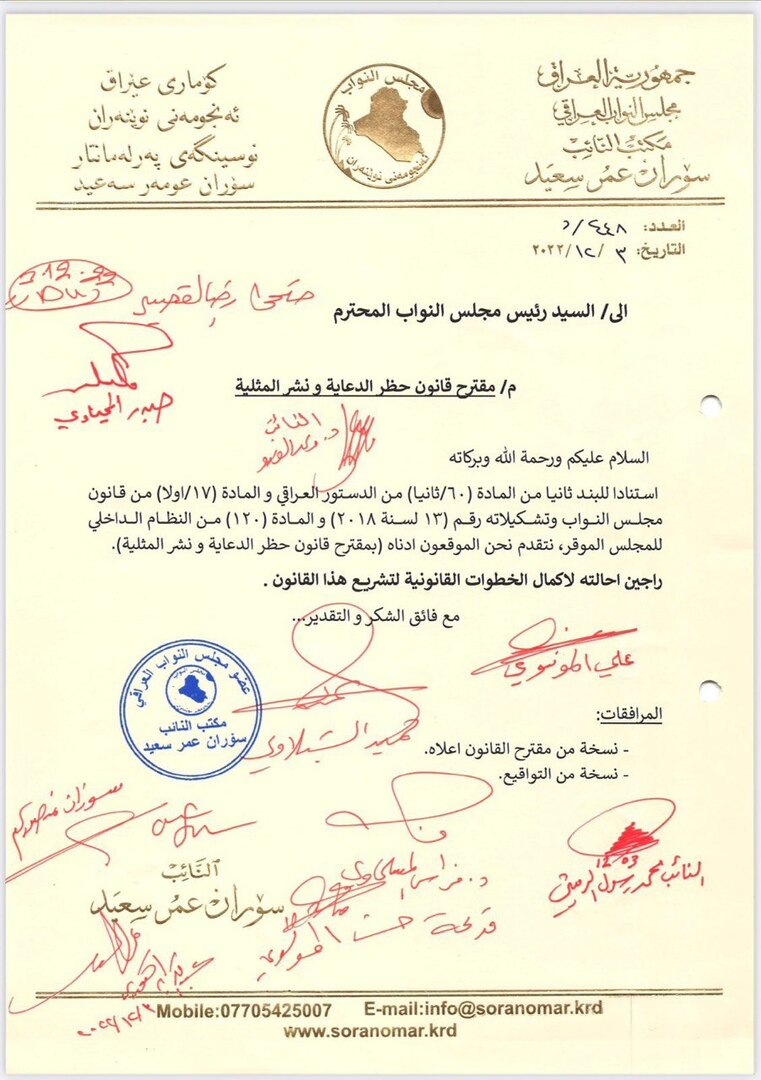 جمهورية العراق
مجلس النواب العراقي
مكتب النائب
سۆران عمر سعيد
كۆماری عێراق
ئەنجومەنی نوێنەران
نوسینگەی پەرلەمانتار
سۆران عومەر سەعید
مجلس النواب
ئەنجومەنی نوێنەران
العدد: ٤٤٨/د
التاريخ: ٣ /١٢/ ٢٠٢٢
الى/ السيد رئيس مجلس النواب المحترم
م/ مقترح قانون حظر الدعاية و نشر المثلية
حيدر
النائب
السلام عليكم ورحمة الله وبركاته
استنادا للبند ثانيا من المادة (٦٠/ثانيا) من الدستور العراقي و المادة (١٧/اولا) من قانون
مجلس النواب وتشكيلاته رقم (١٣ لسنة ٢٠١٨) و المادة (١٢٠) من النظام الداخلي
للمجلس الموقر، نتقدم نحن الموقعون ادناه (بمقترح قانون حظر الدعاية و نشر المثلية).
راجين احالته لاكمال الخطوات القانونية لتشريع هذا القانون .
مع فائق الشكر و التقدير...
علي الموسوي
عضو مجلس النواب العراقي
مكتب النائب
سۆران عمر سعيد
المرافقات:
- نسخة من مقترح القانون اعلاه.
- نسخة من التواقيع.
سوران
النائب محمد رسول
12 03
النائب
سۆران عمر سعيد
Mobile:07705425007 E-mail:info@soranomar.krd
www.soranomar.krd